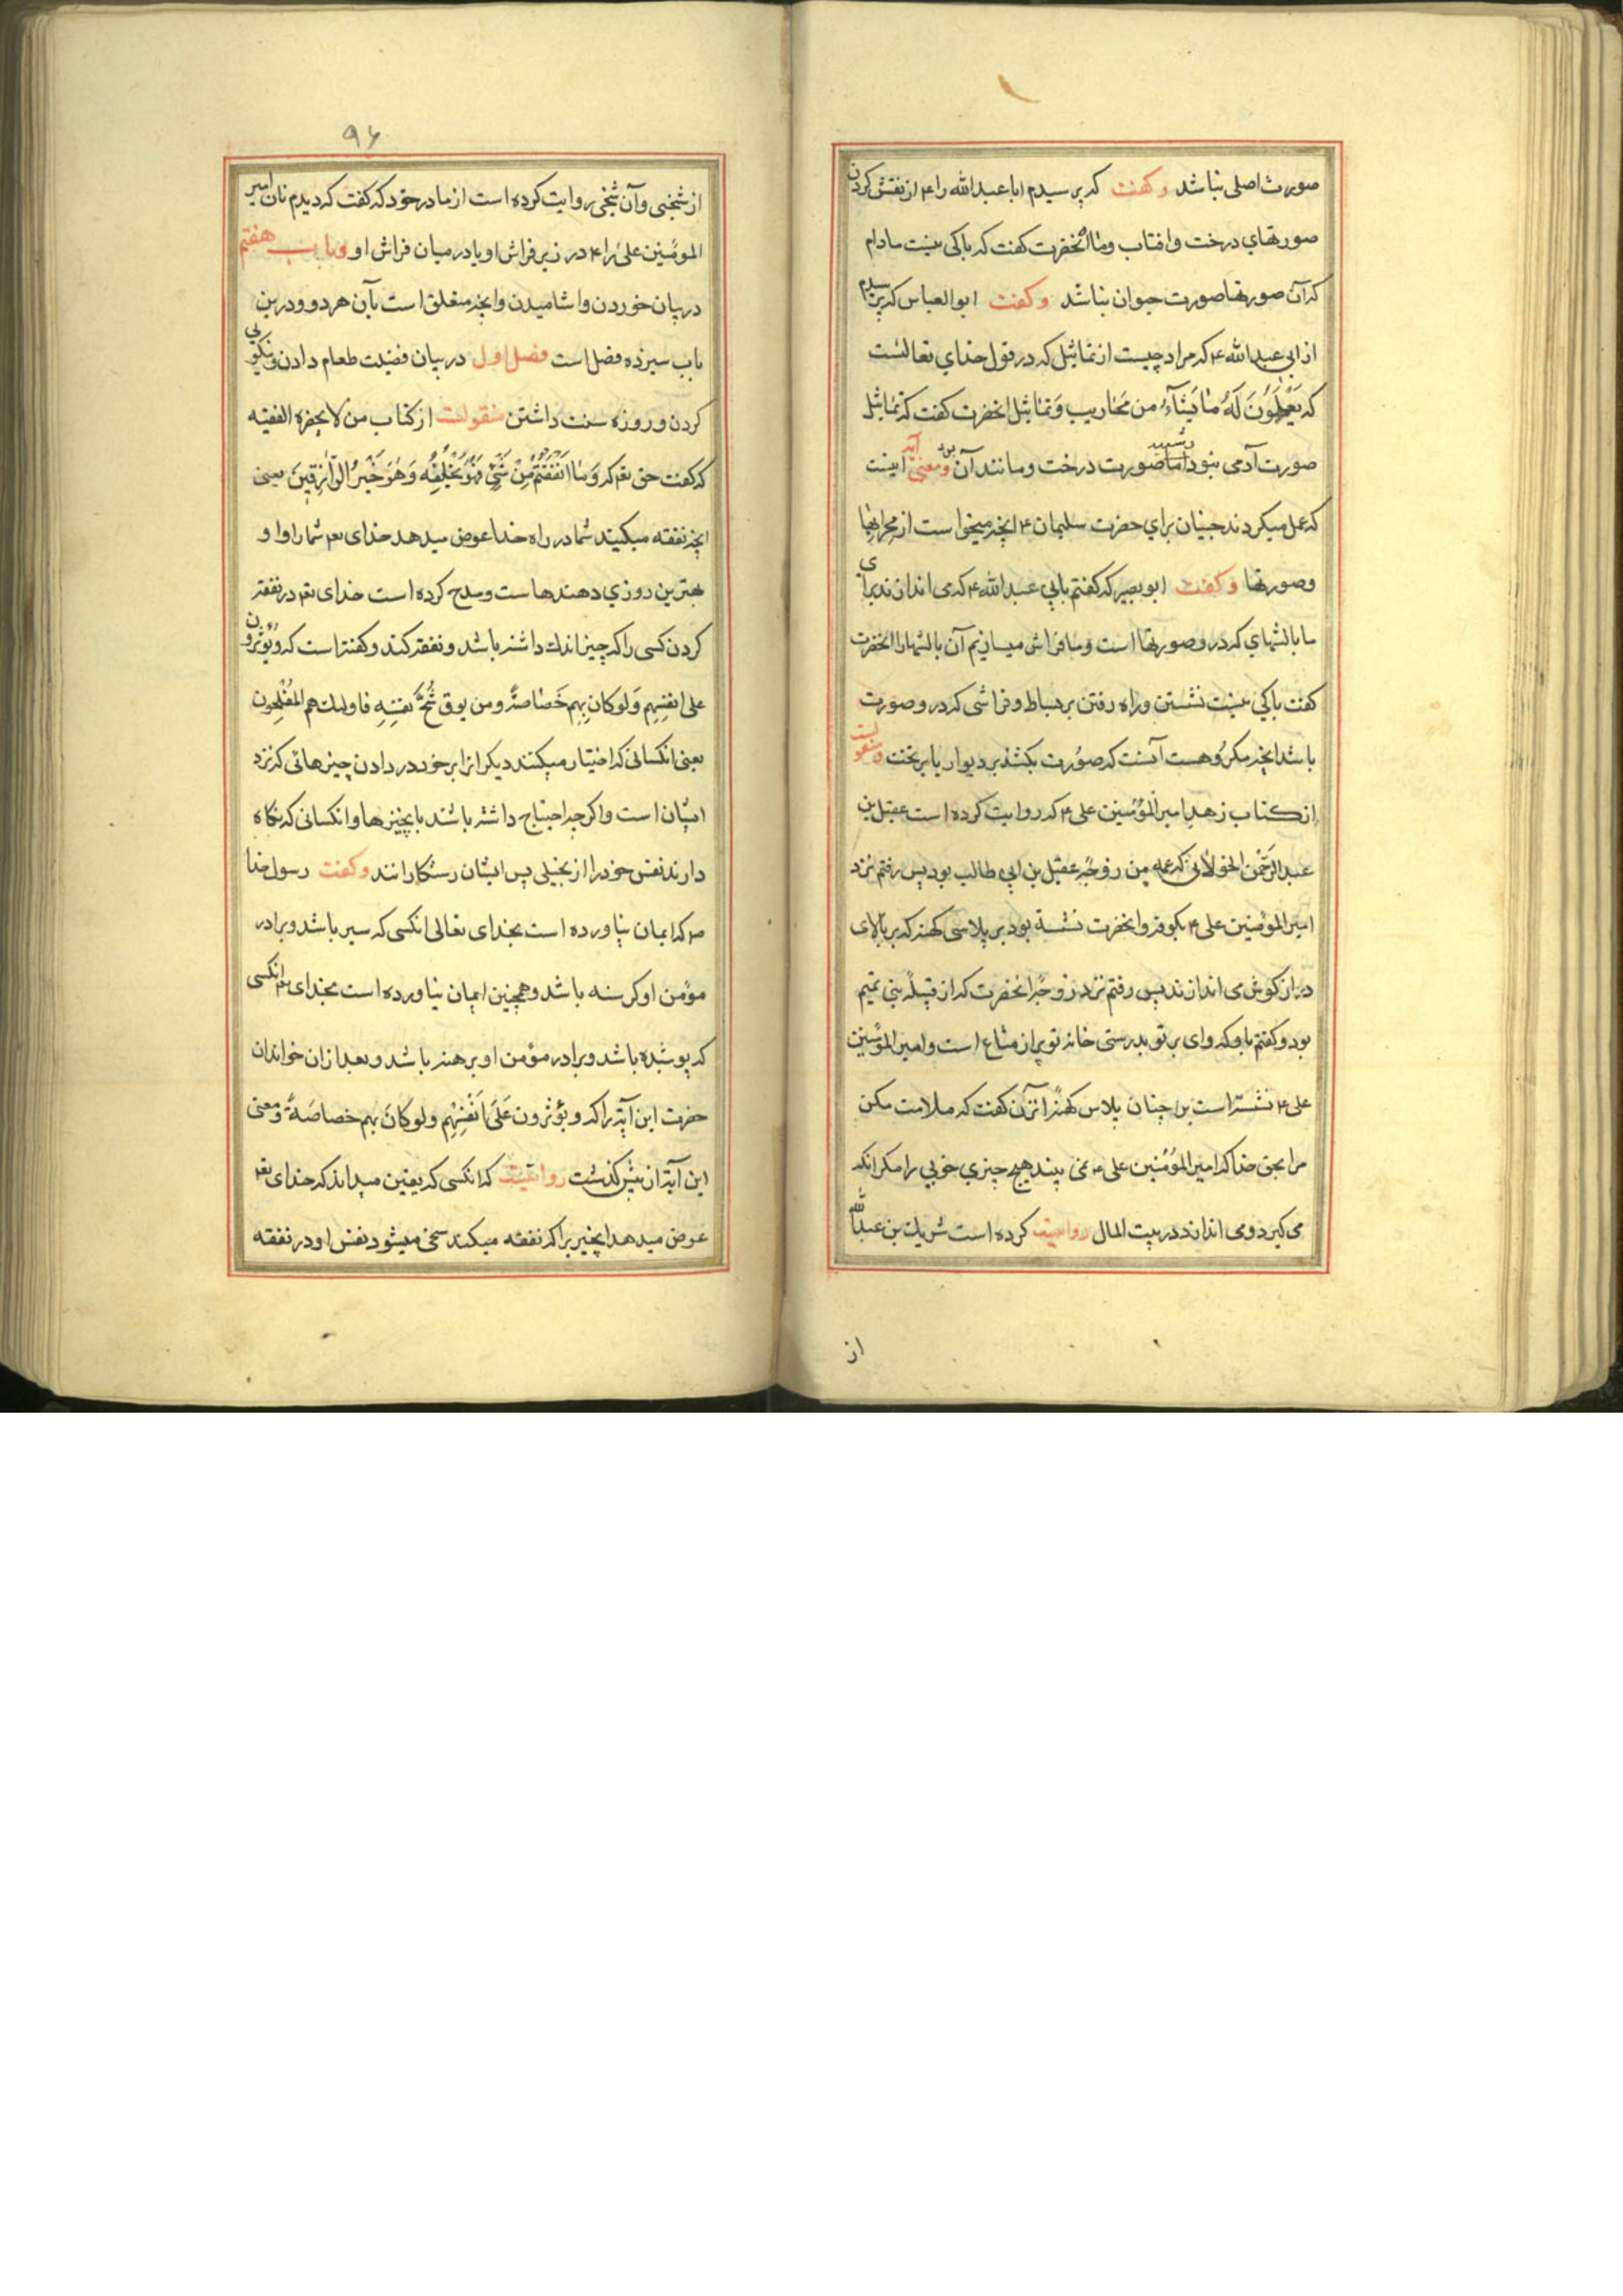 صورت اصلی نباشد وکفت که پرسیدم ابا عبد الله را ۴ از نقش کردن
صورتهای درخت وافتاب وماه انحضرت کفت که باکی نیست مادام
که آن صورتها صورت حیوان نباشد وکفت ابو العباس که پرسیدم
از ابی عبد الله ۴ که مراد چیست از تماثیل که در قول خدای تعالیست
که یَعْمَلُونَ لَهُ ما یَشَآءُ من مَحاریب وَتماثیل انحضرت کفت که تماثیل
صورت آدمی نبود اما صورت درخت ومانند آن بود ومعنی آیه اینست
که عمل میکردند جنیان برای حضرت سلیمان ۴ انچه میخواست از محرابها
وصورتها وکفت ابو بصیر که کفتم بابی عبد الله ۴ که می اندازند برای
ما بالشهای که درو صورتها است وما فراش میسازیم آن بالشها را انحضرت
کفت باکی نیست نشستن وراه رفتن بر بساط وفراشی که درو صورت
باشد انچه مکروهست آنست که صورت بکشند بر دیوار یا بر تخت ومنقولست
از کتاب زهد امیر المؤمنین علی ۴ که روایت کرده است عقیل بن
عبد الرحمن الخولانی که عمه من زوجه عقیل بن ابی طالب بود پس رفتم نزد
امیر المؤمنین علی ۴ بکوفه وانحضرت نشسته بود بر پلاسی کهنه که بر بالای
دراز کوش می اندازند پس رفتم نزد زوجه انحضرت که از قبیله بنی تمیم
بود وکفتم باو که وای بر تو بدرستی خانه تو پر از متاع است وامیر المؤمنین
علی ۴ نشسته است بر اچنان پلاس کهنه انزن کفت که ملامت مکن
مرا بحق خدا که امیر المؤمنین علی ۴ نمی بیند هیچ چیزی خوبی را مکر انکه
می کیرد ومی اندازد در بیت المال روایت کرده است شریك بن عبد الله
از
۹۶
از شخصی وآن شخص روایت کرده است از مادر خود که کفت که دیدم نان امیر
المومنین علی را ۴ در زیر فراش او یا در میان فراش او وباب هفتم
در بیان خوردن واشامیدن وانچه متعلق است بآن هردو ودرین
باب سیزده فصل است فصل اول در بیان فضیلت طعام دادن ونیکویی
کردن وروزه سنت داشتن منقولست از کتاب من لا یحضره الفقیه
که کفت حق تعم که وَما اَنْفَقْتُمْ مِنْ شَیْءٍ فَهُوَ یُخْلِفُه وَهُوَ خَیْرُ الرّازِقینَ یعنی
انچه نفقه میکنید شما در راه خدا عوض میدهد خدای تعم شما را او او
بهترین روزی دهندهاست ومدح کرده است خدای تعم در نفقه
کردن کسی را که چیز اندك داشته باشد ونفقه کند وکفته است که ویؤثرون
علی انفسهم وَلو کان بهم خَصاصةٌ ومن یوق شُحَّ نفسِهِ فاولئك هم المُفْلِحون
یعنی انکسانی که اختیار میکنند دیکرانرا بر خود در دادن چیزهائی که نزد
ایشان است واکر چه احتیاج داشته باشد بانچیزها وانکسانی که نکاه
دارند نفس خود را از بخیلی پس ایشان رستکارانند وکفت رسول خدا
ص که ایمان نیاورده است بخدای تعالی انکسی که سیر باشد وبرادر
مؤمن او کرسنه باشد وهمچنین ایمان نیاورده است بخدای تعم انکسی
که پوشیده باشد وبرادر مؤمن او برهنه باشد وبعد ازان خواندان
حضرت این آیه را که ویؤثرون عَلَی اَنْفُسِهِم ولو کان بهم خصاصَةٌ ومعنی
این آیه از پیش کذشت روایتست که انکسی که یقین میداند که خدای تعم
عوض میدهد انچیز را که نفقه میکند سخی میشود نفس او در نفقه